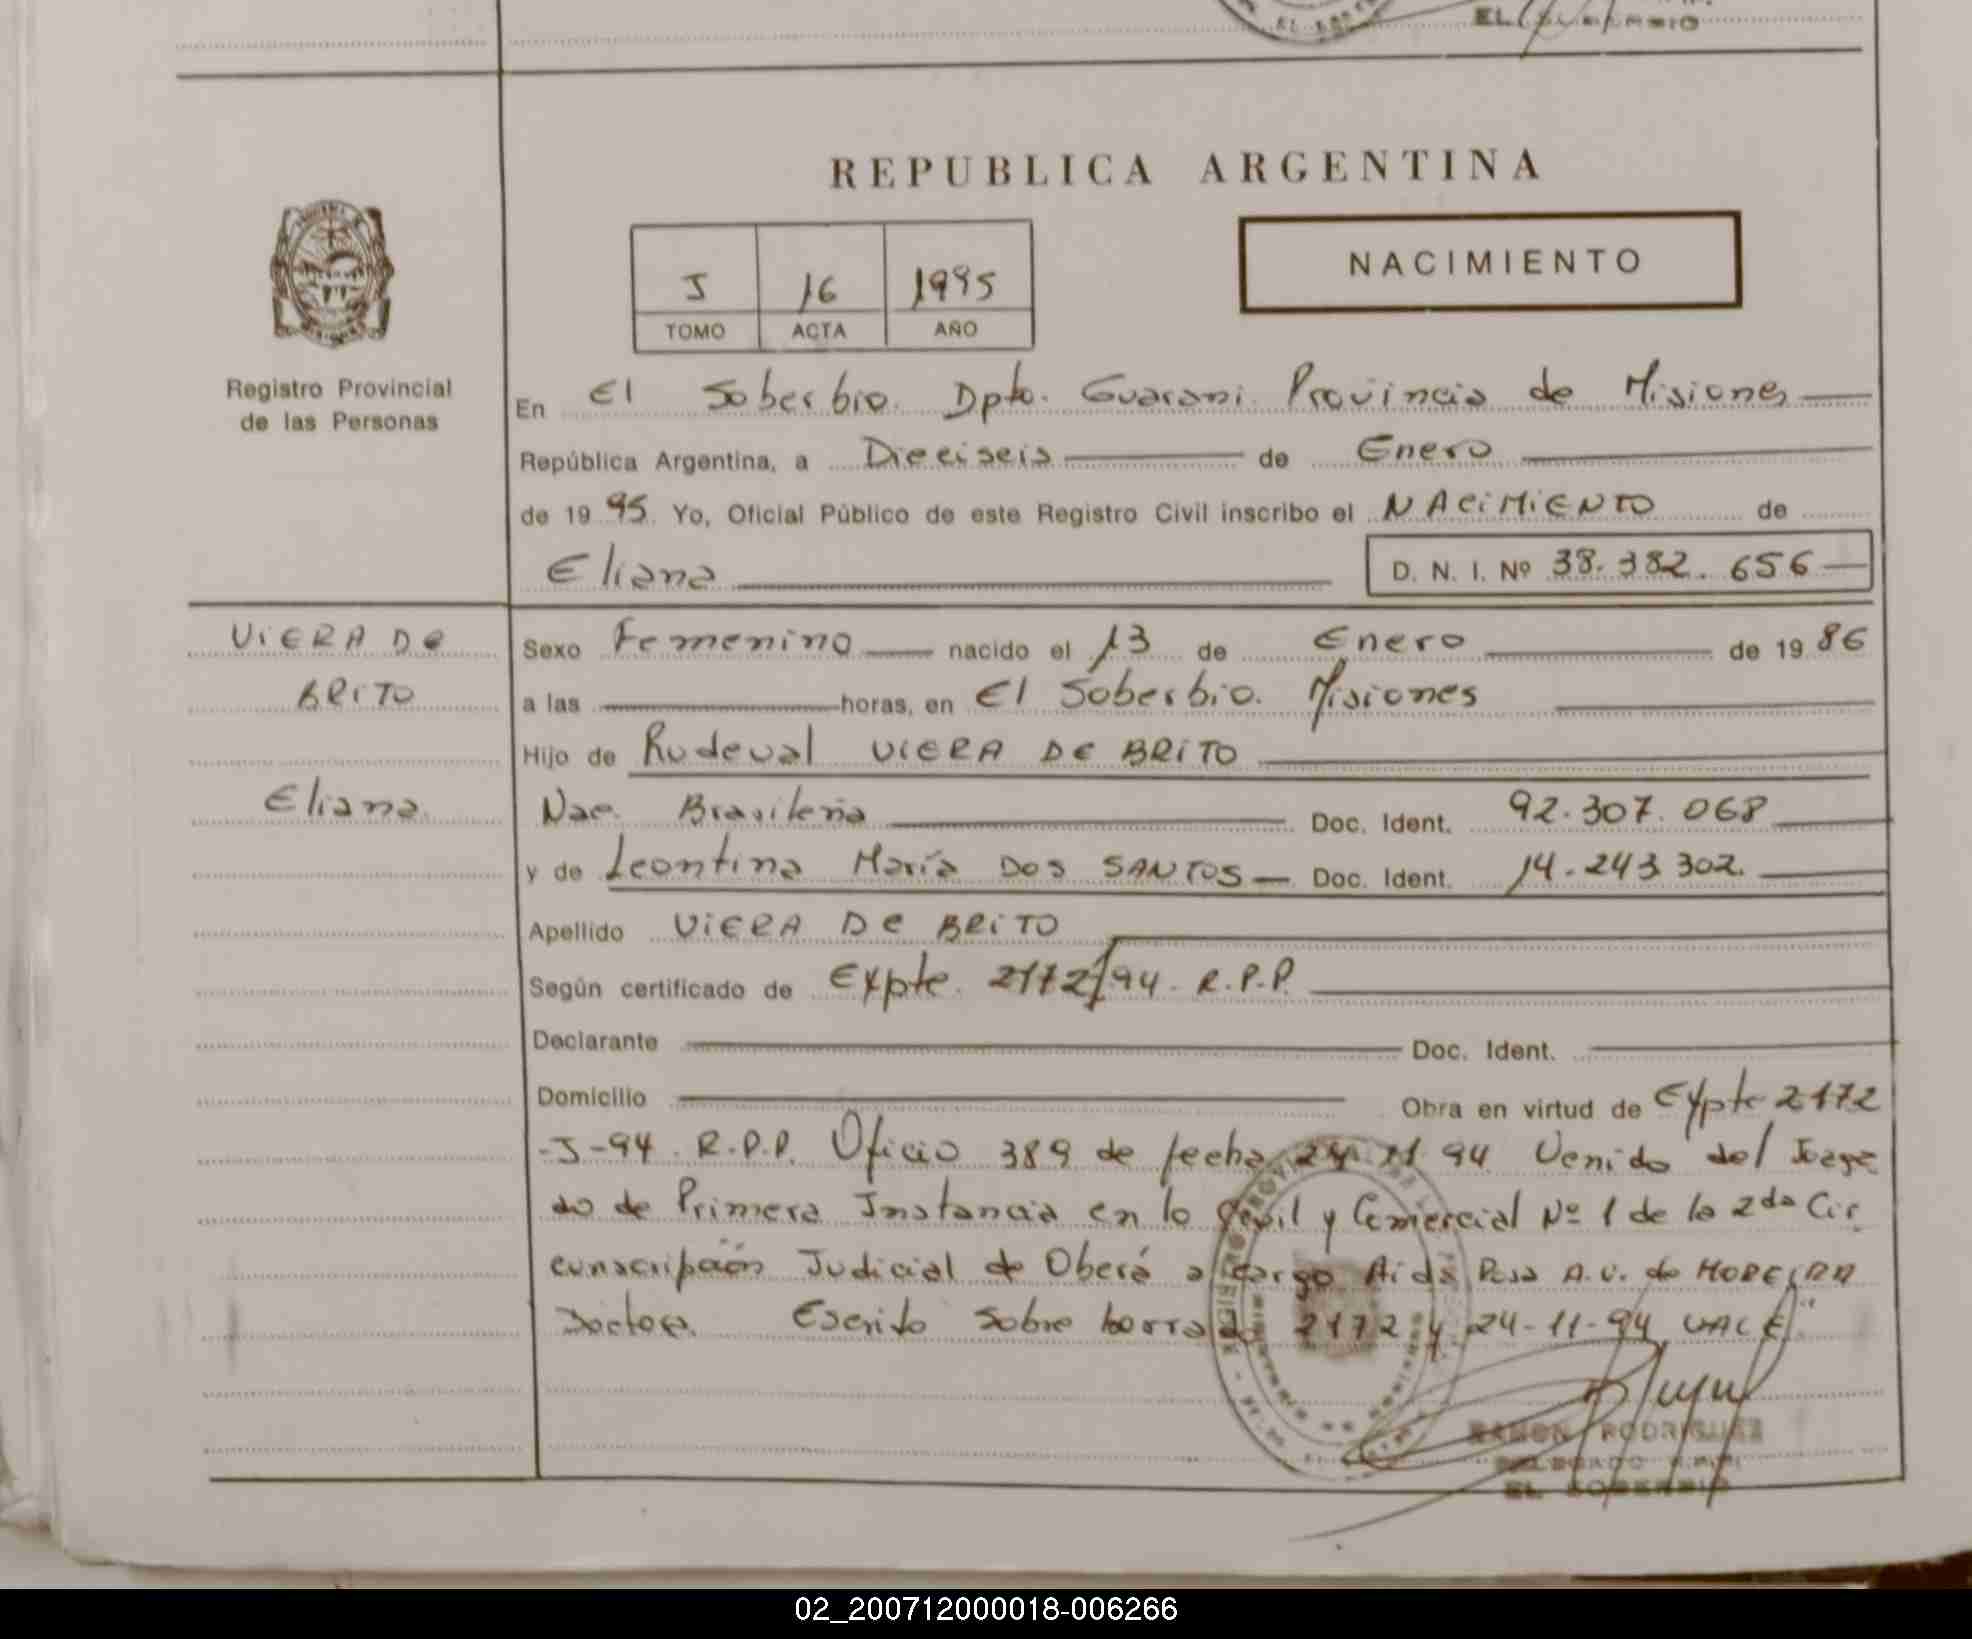 REPUBLICA ARGENTINA
J 16 1995
TOMO ACTA AÑO
NACIMIENTO
Registro Provincial
de las Personas
En El Soberbio. Dpto. Guarani. Provincia de Misiones
República Argentina, a Dieciseis de Enero
de 1995. Yo, Oficial Público de este Registro Civil inscribo el NACIMIENTO de
Eliana D. N. I. Nº 38.382.656
VIERA DE
BRITO
Eliana
Sexo Femenino nacido el 13 de Enero de 1986
a las horas, en El Soberbio. Misiones
Hijo de Rudeval VIERA DE BRITO
Nac. Brasileña Doc. Ident. 92.307.068
y de Leontina María DOS SANTOS Doc. Ident. 14.243.302.
Apellido VIERA DE BRITO
Según certificado de Expte. 2172/94. R.P.P.
Declarante Doc. Ident.
Domicilio Obra en virtud de Expte 2172
-J-94. R.P.P. Oficio 389 de fecha 24 11 94 Venido del Juzga
do de Primera Instancia en lo Civil y Comercial Nº 1 de la 2da Cir
cunscripción Judicial de Oberá a cargo Aida Rosa A.V. de MOREIRA
Doctora. Escrito sobre borrado 2172 y 24-11-94 VALE"
RAMON RODRIGUEZ
DELEGADO R.P.P.
EL SOBERBIO
02_200712000018-006266